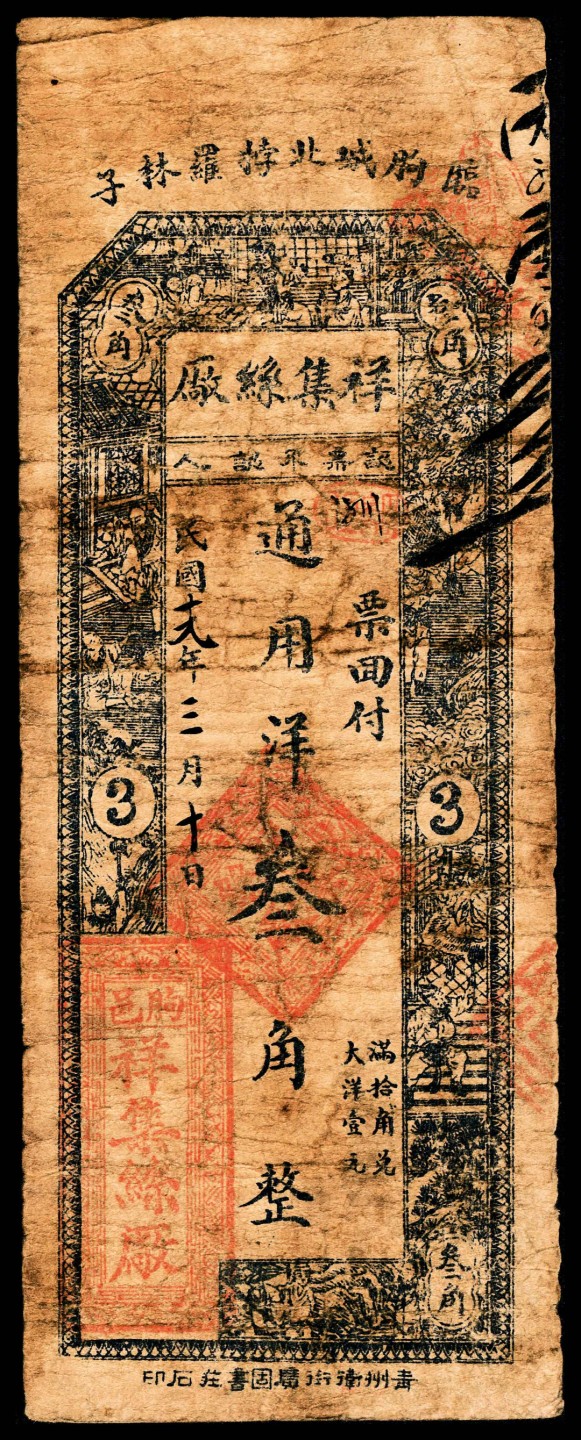 臨朐城北特羅林子
叁角
叁角
祥集絲廠
認票不認人
票面付
通用洋叁角整
滿拾角兑
大洋壹元
民國十九年三月十日
3
3
朐邑
祥集絲廠
叁角
青州衛街廣固書莊石印